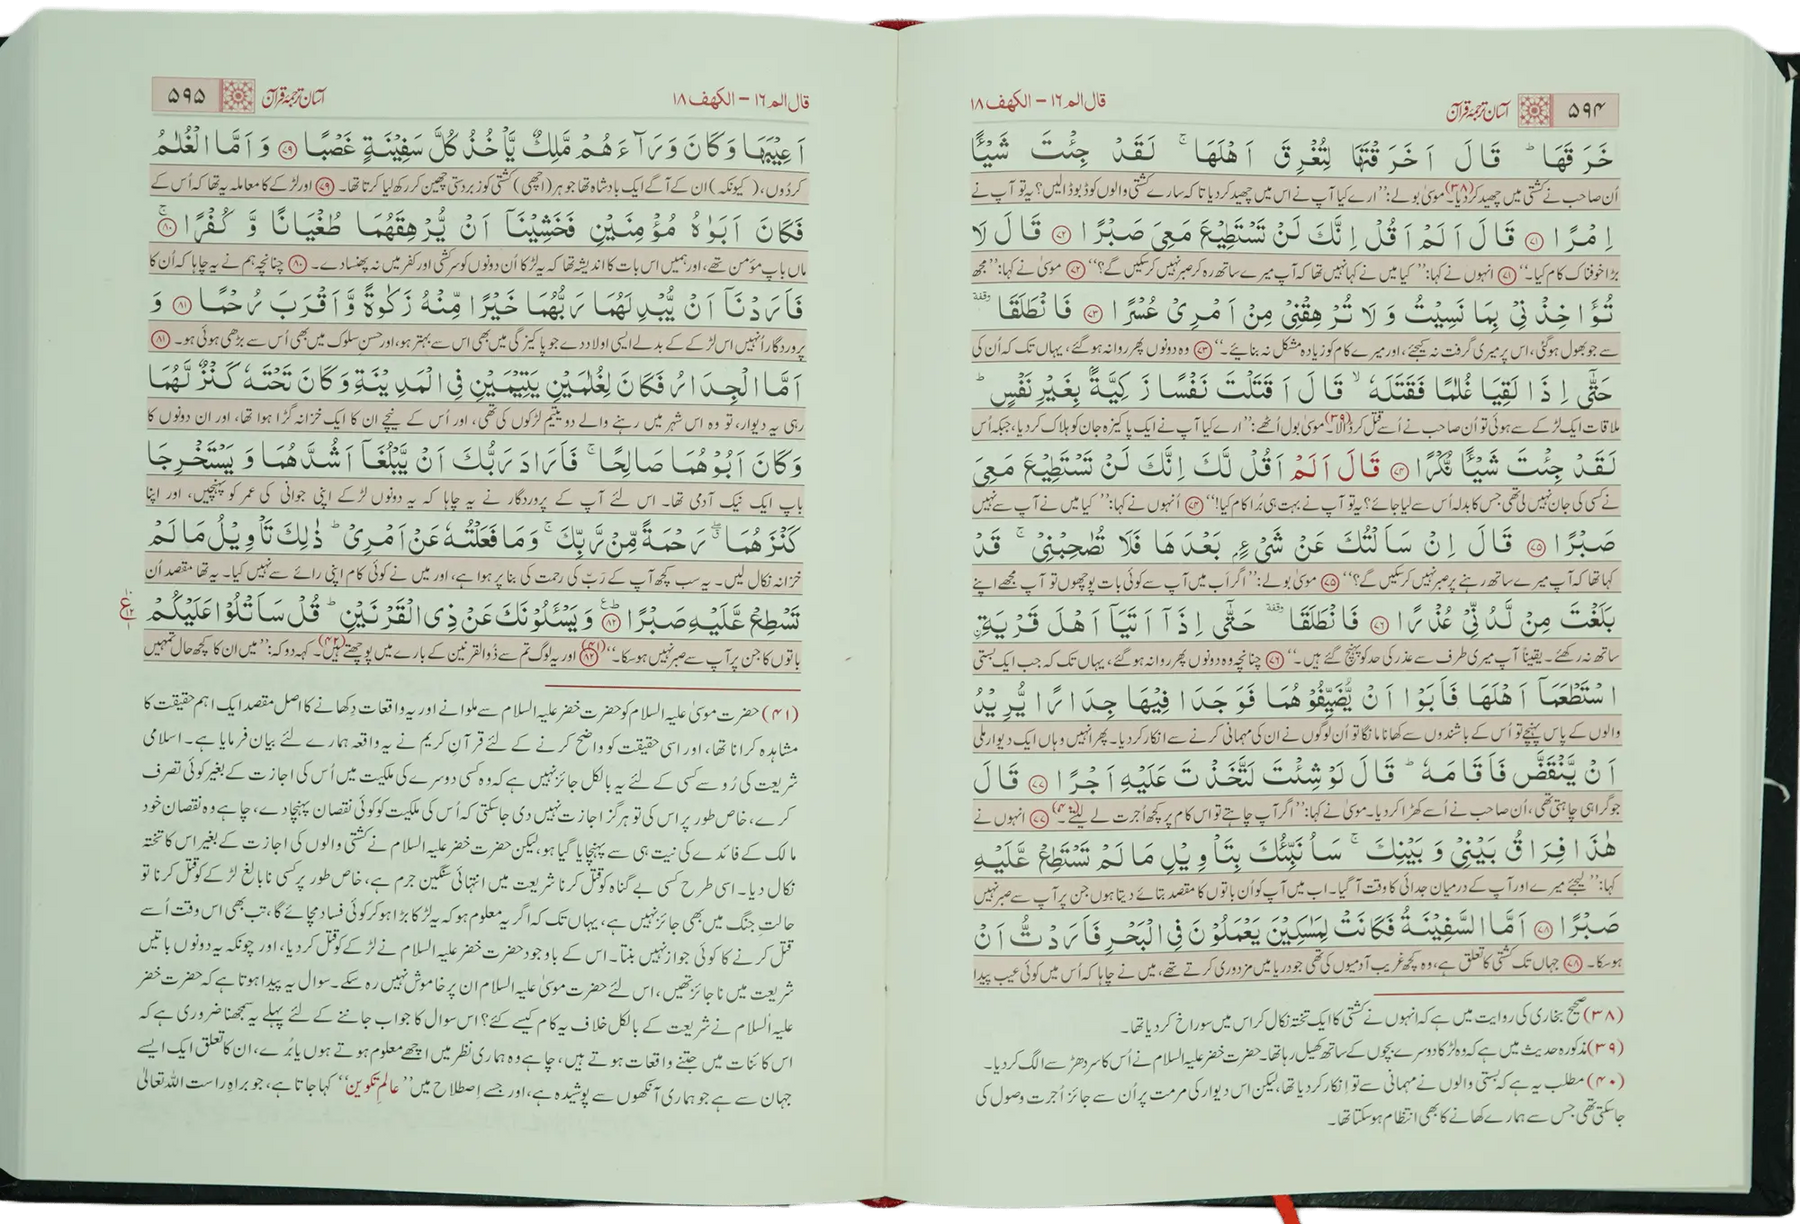 ۵۹۴ آسان ترجمۂ قرآن قال الم ۱۶ – الکہف ۱۸
خَرَقَهَا ؕ قَالَ اَخَرَقْتَهَا لِتُغْرِقَ اَهْلَهَا ۚ لَقَدْ جِئْتَ شَيْـًٔا
اُن صاحب نے کشتی میں چھید کردیا۔(۳۸) موسیٰ بولے: ’’ارے کیا آپ نے اس میں چھید کر دیا تاکہ سارے کشتی والوں کو ڈبو ڈالیں؟ یہ تو آپ نے
اِمْرًا ﴿۷۱﴾ قَالَ اَلَمْ اَقُلْ اِنَّكَ لَنْ تَسْتَطِيْعَ مَعِيَ صَبْرًا ﴿۷۲﴾ قَالَ لَا
بڑا خوفناک کام کیا۔‘‘ ﴿۷۱﴾ انہوں نے کہا: ’’کیا میں نے کہا نہیں تھا کہ آپ میرے ساتھ رہ کر صبر نہیں کرسکیں گے؟‘‘ ﴿۷۲﴾ موسیٰ نے کہا: ’’مجھ
تُؤَاخِذْنِيْ بِمَا نَسِيْتُ وَ لَا تُرْهِقْنِيْ مِنْ اَمْرِيْ عُسْرًا ﴿۷۳﴾ فَانْطَلَقَا ۥ وقفة
سے جو بھول ہوگئی، اس پر میری گرفت نہ کیجئے، اور میرے کام کو زیادہ مشکل نہ بنائیے۔‘‘ ﴿۷۳﴾ وہ دونوں پھر روانہ ہوگئے، یہاں تک کہ اُن کی
حَتّٰۤى اِذَا لَقِيَا غُلٰمًا فَقَتَلَهٗ ۙ قَالَ اَقَتَلْتَ نَفْسًا زَكِيَّةًۢ بِغَيْرِ نَفْسٍ ؕ
ملاقات ایک لڑکے سے ہوئی تو اُن صاحب نے اُسے قتل کر ڈالا۔(۳۹) موسیٰ بول اُٹھے: ’’ارے کیا آپ نے ایک پاکیزہ جان کو ہلاک کر دیا، جبکہ اُس
لَقَدْ جِئْتَ شَيْـًٔا نُّكْرًا ﴿۷۴﴾ قَالَ اَلَمْ اَقُلْ لَّكَ اِنَّكَ لَنْ تَسْتَطِيْعَ مَعِيَ
نے کسی کی جان نہیں لی تھی جس کا بدلہ اُس سے لیا جائے؟ یہ تو آپ نے بہت ہی بُرا کام کیا!‘‘ ﴿۷۴﴾ اُنہوں نے کہا: ’’کیا میں نے آپ سے نہیں
صَبْرًا ﴿۷۵﴾ قَالَ اِنْ سَاَلْتُكَ عَنْ شَيْءٍۭ بَعْدَهَا فَلَا تُصٰحِبْنِيْ ۚ قَدْ
کہا تھا کہ آپ میرے ساتھ رہنے پر صبر نہیں کرسکیں گے؟‘‘ ﴿۷۵﴾ موسیٰ بولے: ’’اگر اَب میں آپ سے کوئی بات پوچھوں تو آپ مجھے اپنے
بَلَغْتَ مِنْ لَّدُنِّيْ عُذْرًا ﴿۷۶﴾ فَانْطَلَقَا ۥ وقفة حَتّٰۤى اِذَاۤ اَتَيَاۤ اَهْلَ قَرْيَةِ ِۨ
ساتھ نہ رکھئے۔ یقیناً آپ میری طرف سے عذر کی حد کو پہنچ گئے ہیں۔‘‘ ﴿۷۶﴾ چنانچہ وہ دونوں پھر روانہ ہوگئے، یہاں تک کہ جب ایک بستی
اسْتَطْعَمَاۤ اَهْلَهَا فَاَبَوْا اَنْ يُّضَيِّفُوْهُمَا فَوَجَدَا فِيْهَا جِدَارًا يُّرِيْدُ
والوں کے پاس پہنچے تو اُس کے باشندوں سے کھانا مانگا تو اُن لوگوں نے ان کی مہمانی کرنے سے انکار کر دیا۔ پھر انہیں وہاں ایک دیوار ملی
اَنْ يَّنْقَضَّ فَاَقَامَهٗ ؕ قَالَ لَوْ شِئْتَ لَتَّخَذْتَ عَلَيْهِ اَجْرًا ﴿۷۷﴾ قَالَ
جو گرا ہی چاہتی تھی، اُن صاحب نے اُسے کھڑا کر دیا۔ موسیٰ نے کہا: ’’اگر آپ چاہتے تو اس کام پر کچھ اُجرت لے لیتے۔‘‘(۴۰) ﴿۷۷﴾ انہوں نے
هٰذَا فِرَاقُ بَيْنِيْ وَ بَيْنِكَ ۚ سَاُنَبِّئُكَ بِتَاْوِيْلِ مَا لَمْ تَسْتَطِعْ عَّلَيْهِ
کہا: ’’لیجئے میرے اور آپ کے درمیان جدائی کا وقت آگیا۔ اب میں آپ کو اُن باتوں کا مقصد بتائے دیتا ہوں جن پر آپ سے صبر نہیں
صَبْرًا ﴿۷۸﴾ اَمَّا السَّفِيْنَةُ فَكَانَتْ لِمَسٰكِيْنَ يَعْمَلُوْنَ فِي الْبَحْرِ فَاَرَدْتُّ اَنْ
ہوسکا۔ ﴿۷۸﴾ جہاں تک کشتی کا تعلق ہے، وہ کچھ غریب آدمیوں کی تھی جو دریا میں مزدوری کرتے تھے، میں نے چاہا کہ اُس میں کوئی عیب پیدا
(۳۸) صحیح بخاری کی روایت میں ہے کہ انہوں نے کشتی کا ایک تختہ نکال کر اس میں سوراخ کر دیا تھا۔
(۳۹) مذکورہ حدیث میں ہے کہ وہ لڑکا دوسرے بچوں کے ساتھ کھیل رہا تھا۔ حضرت خضر علیہ السلام نے اُس کا سر دھڑ سے الگ کر دیا۔
(۴۰) مطلب یہ ہے کہ بستی والوں نے مہمانی سے تو اِنکار کر دیا تھا، لیکن اس دیوار کی مرمت پر اُن سے جائز اُجرت وصول کی
جاسکتی تھی جس سے ہمارے کھانے کا بھی انتظام ہوسکتا تھا۔
قال الم ۱۶ – الکہف ۱۸ آسان ترجمۂ قرآن ۵۹۵
اَعِيْبَهَا وَكَانَ وَرَآءَهُمْ مَّلِكٌ يَّاْخُذُ كُلَّ سَفِيْنَةٍ غَصْبًا ﴿۷۹﴾ وَ اَمَّا الْغُلٰمُ
کردُوں، (کیونکہ) ان کے آگے ایک بادشاہ تھا جو ہر (اچھی) کشتی کو زبردستی چھین کر رکھ لیا کرتا تھا۔ ﴿۷۹﴾ اور لڑکے کا معاملہ یہ تھا کہ اُس کے
فَكَانَ اَبَوٰهُ مُؤْمِنَيْنِ فَخَشِيْنَاۤ اَنْ يُّرْهِقَهُمَا طُغْيَانًا وَّ كُفْرًا ﴿۸۰﴾ۚ
ماں باپ مؤمن تھے، اور ہمیں اس بات کا اندیشہ تھا کہ یہ لڑکا اُن دونوں کو سرکشی اور کفر میں نہ پھنسادے۔ ﴿۸۰﴾ چنانچہ ہم نے یہ چاہا کہ اُن کا
فَاَرَدْنَاۤ اَنْ يُّبْدِلَهُمَا رَبُّهُمَا خَيْرًا مِّنْهُ زَكٰوةً وَّ اَقْرَبَ رُحْمًا ﴿۸۱﴾ وَ
پروردگار اُنہیں اس لڑکے کے بدلے ایسی اولاد دے جو پاکیزگی میں بھی اس سے بہتر ہو، اور حسنِ سلوک میں بھی اُس سے بڑھی ہوئی ہو۔ ﴿۸۱﴾
اَمَّا الْجِدَارُ فَكَانَ لِغُلٰمَيْنِ يَتِيْمَيْنِ فِي الْمَدِيْنَةِ وَ كَانَ تَحْتَهٗ كَنْزٌ لَّهُمَا
رہی یہ دیوار، تو وہ اس شہر میں رہنے والے دو یتیم لڑکوں کی تھی، اور اُس کے نیچے ان کا ایک خزانہ گڑا ہوا تھا، اور ان دونوں کا
وَ كَانَ اَبُوْهُمَا صَالِحًا ۚ فَاَرَادَ رَبُّكَ اَنْ يَّبْلُغَاۤ اَشُدَّهُمَا وَ يَسْتَخْرِجَا
باپ ایک نیک آدمی تھا۔ اس لئے آپ کے پروردگار نے یہ چاہا کہ یہ دونوں لڑکے اپنی جوانی کی عمر کو پہنچیں، اور اپنا
كَنْزَهُمَا ۖۗ رَحْمَةً مِّنْ رَّبِّكَ ۚ وَمَا فَعَلْتُهٗ عَنْ اَمْرِيْ ؕ ذٰلِكَ تَاْوِيْلُ مَا لَمْ
خزانہ نکال لیں۔ یہ سب کچھ آپ کے رَبّ کی رحمت کی بنا پر ہوا ہے، اور میں نے کوئی کام اپنی رائے سے نہیں کیا۔ یہ تھا مقصد اُن
تَسْطِعْ عَّلَيْهِ صَبْرًا ﴿۸۲﴾ؕ وَ يَسْـَٔلُوْنَكَ عَنْ ذِي الْقَرْنَيْنِ ؕ قُلْ سَاَتْلُوْا عَلَيْكُمْ
باتوں کا جن پر آپ سے صبر نہیں ہوسکا۔‘‘(۴۱) ﴿۸۲﴾ اور یہ لوگ تم سے ذُوالقرنین کے بارے میں پوچھتے ہیں(۴۲)۔ کہہ دو کہ: ’’میں ان کا کچھ حال تمہیں
(۴۱) حضرت موسیٰ علیہ السلام کو حضرت خضر علیہ السلام سے ملوانے اور یہ واقعات دِکھانے کا اصل مقصد ایک اہم حقیقت کا
مشاہدہ کرانا تھا، اور اسی حقیقت کو واضح کرنے کے لئے قرآنِ کریم نے یہ واقعہ ہمارے لئے بیان فرمایا ہے۔ اسلامی
شریعت کی رُو سے کسی کے لئے یہ بالکل جائز نہیں ہے کہ وہ کسی دوسرے کی ملکیت میں اُس کی اجازت کے بغیر کوئی تصرف
کرے، خاص طور پر اس کی تو ہرگز اجازت نہیں دی جاسکتی کہ اُس کی ملکیت کو کوئی نقصان پہنچادے، چاہے وہ نقصان خود
مالک کے فائدے کی نیت ہی سے پہنچایا گیا ہو، لیکن حضرت خضر علیہ السلام نے کشتی والوں کی اجازت کے بغیر اس کا تختہ
نکال دیا۔ اسی طرح کسی بے گناہ کو قتل کرنا شریعت میں انتہائی سنگین جرم ہے، خاص طور پر کسی نابالغ لڑکے کو قتل کرنا تو
حالتِ جنگ میں بھی جائز نہیں ہے، یہاں تک کہ اگر یہ معلوم ہو کہ یہ لڑکا بڑا ہوکر کوئی فساد مچائے گا، تب بھی اس وقت اُسے
قتل کرنے کا کوئی جواز نہیں بنتا۔ اس کے باوجود حضرت خضر علیہ السلام نے لڑکے کو قتل کر دیا، اور چونکہ یہ دونوں باتیں
شریعت میں ناجائز تھیں، اس لئے حضرت موسیٰ علیہ السلام ان پر خاموش نہیں رہ سکے۔ سوال یہ پیدا ہوتا ہے کہ حضرت خضر
علیہ السلام نے شریعت کے بالکل خلاف یہ کام کیسے کئے؟ اس سوال کا جواب جاننے کے لئے پہلے یہ سمجھنا ضروری ہے کہ
اس کائنات میں جتنے واقعات ہوتے ہیں، چاہے وہ ہماری نظر میں اچھے معلوم ہوتے ہوں یا بُرے، ان کا تعلق ایک ایسے
جہان سے ہے جو ہماری آنکھوں سے پوشیدہ ہے، اور جسے اِصطلاح میں ’’عالمِ تکوین‘‘ کہا جاتا ہے، جو براہِ راست اللہ تعالیٰ